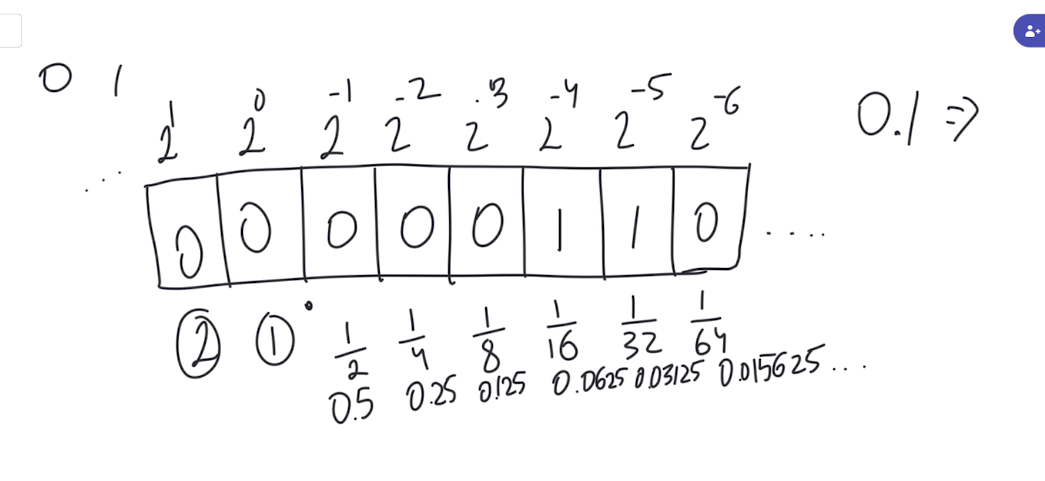 0 1
2^1 2^0 2^-1 2^-2 2^-3 2^-4 2^-5 2^-6 0.1 =>
... 0 0 0 0 0 1 1 0 ....
2 1 . 1/2 1/4 1/8 1/16 1/32 1/64
0.5 0.25 0.125 0.0625 0.03125 0.015625 ...